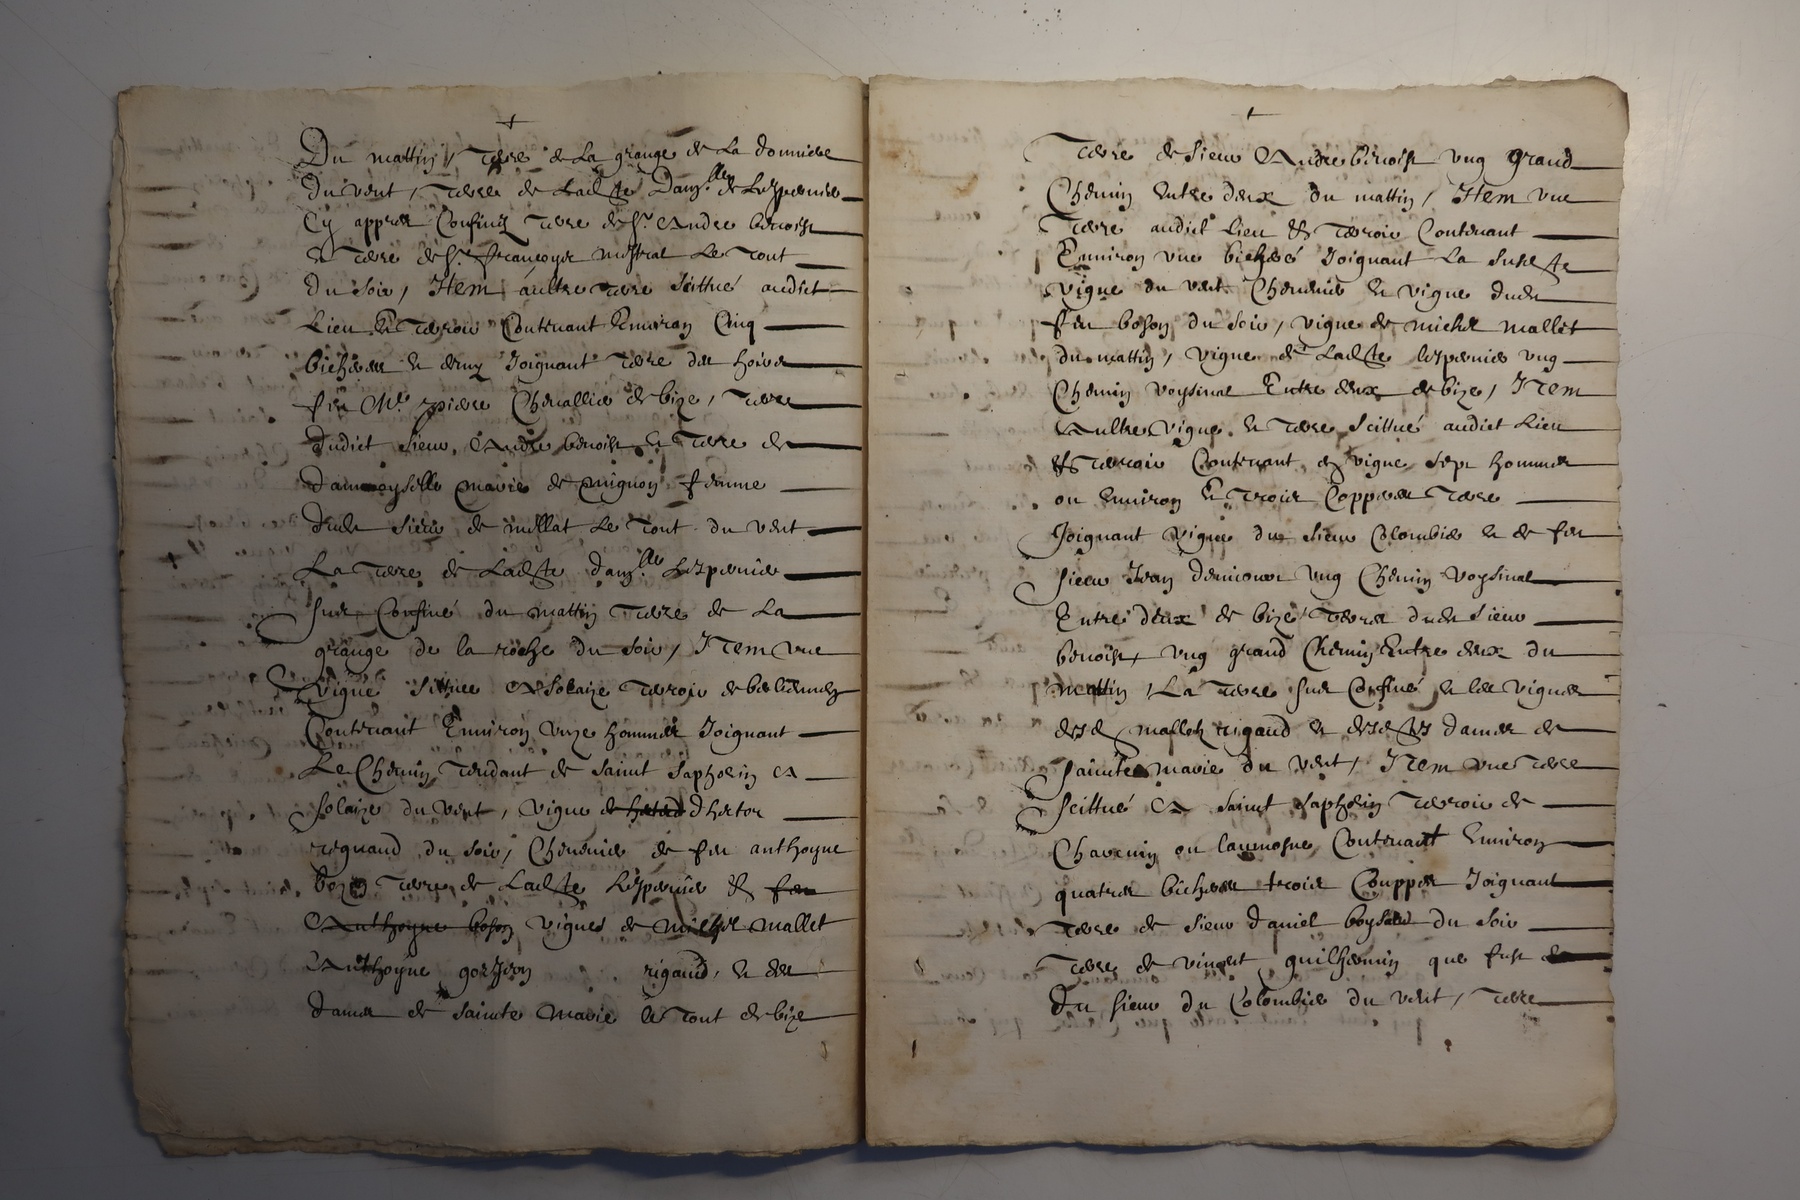 Du mattin, terre de la grange de la donniere
du vent, terre de ladicte damlle Lespervier
cy appres confinez terre de sr Andre benoist
et terre de sr francoys mistral le tout
du soir, Item aultre terre scittué audict
lieu et terroir contenant environ cinq
bicherees et demy joignant terre des hoirs
feu Me pierre chevallier de bize, terre
dudict sieur Andre benoist et terre de
dammoyselle marie de mignon femme
dudt sieur de millat le tout du vent
La terre de ladicte damlle Lespervier
sus confiné du mattin terre de la
grange de la roche du soir, Item une
vigne sittuee A Solaize terroir de
contenant environ unze hommes joignant
Le chemin tendant de saint saphorin A
solaize du vent, vigne dhector
regnaud du soir, de feu anthoyne
bozon terre de ladicte Lespervier et feu
Anthoyne boson vignes de michel mallet
Anthoyne rigaud, et des
dames de saincte marie le tout de bize
terre de sieur Andre benoist ung grand
chemin entre deux du mattin, Item une
terre audict lieu et terroir contenant
environ une bicheree joignant la susdicte
vigne du vent et vigne dudt
feu boson du soir, vigne de michel mallet
du mattin, vigne de ladicte lespervier ung
chemin voysinal entre deux de bize, Item
aultre vigne et terre scittué audict lieu
et terroir contenant de vigne sept hommes
ou environ et trois copperes terre
joignant vigne du sieur colombier et de feu
sieur Jean ung chemin voysinal
entre deux de bize terre dudt sieur
benoist, ung grand chemin entre deux du
mattin, La terre sus confiné et les vignes
desd mallet rigaud et desdites dames de
saincte marie du vent, Item une terre
scittué A saint saphorin terroir de
ou laumosne contenant environ
quatre bicherees trois couppes joignant
terre de sieur daniel du soir
terre de vincent guilhermin que fust
du sieur du colombier du vent, terre